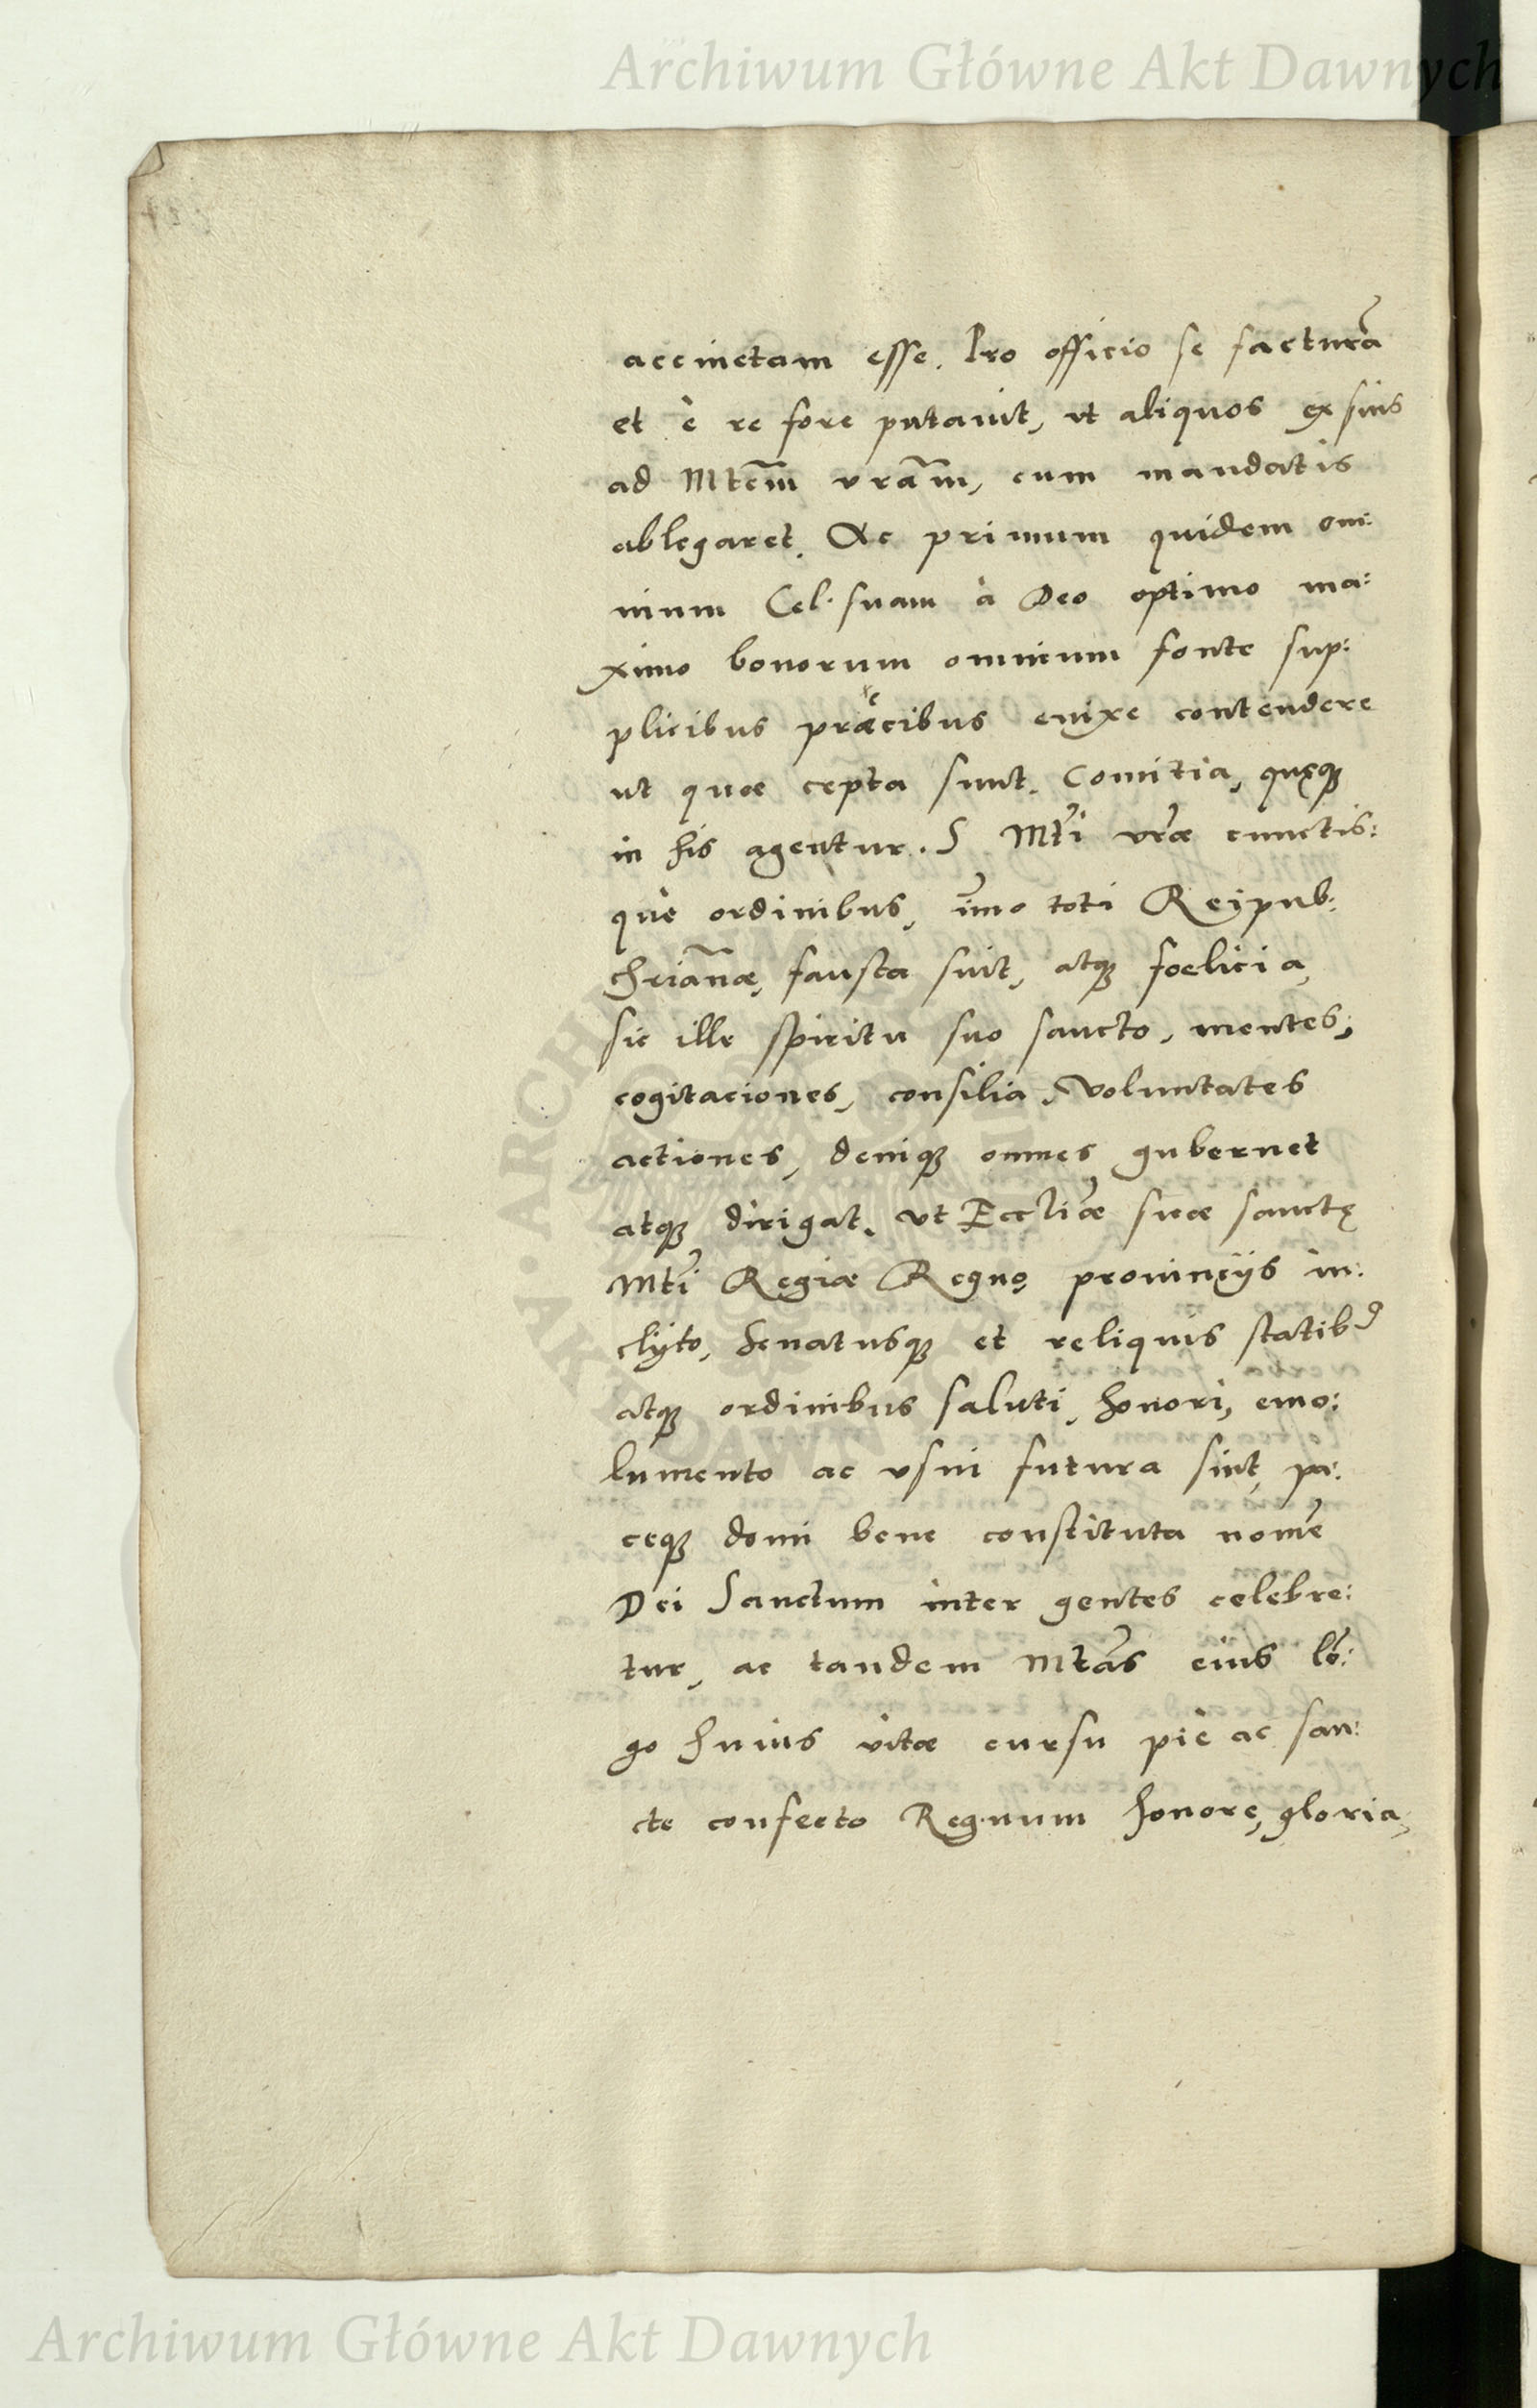 Archiwum Główne Akt Dawnych
accinctam esse. Pro officio se facturã
et è re fore putauit, vt aliquos ex suis
ad Mtẽm vrãm, cum mandatis
ablegaret. Ac primum quidem om:
nium Cel. suam à Deo optimo ma:
ximo bonorum omnium fonte sup:
plicibus præcibus enixe contendere
ut quæ cepta sunt. Comitia, quęq;
in his agentur. S Mti vræ cunctis:
què ordinibus, im̃o toti Reipub:
chriãnæ, fausta sint, atq; foelicia,
sic ille spiritu suo sancto, mentes,
cogitaciones, consilia, voluntates
actiones, deniq; omnes gubernet
atq; dirigat. vt Eccliæ suæ sanctę
Mti Regiæ Regno, prouincijs in:
clyto, senatusq; et reliquis statib9
atq; ordinibus saluti, honori, emo:
lumento ac vsui futura sint, pa:
ceq; domi bene constituta nomẽ
Dei Sanctum inter gentes celebre:
tur, ac tandem Mtãs eius lõ:
go huius vitæ cursu piè ac san:
cte confecto Regnum honore, gloria,
ARCHI
AKT DAWNYCH
Archiwum Główne Akt Dawnych